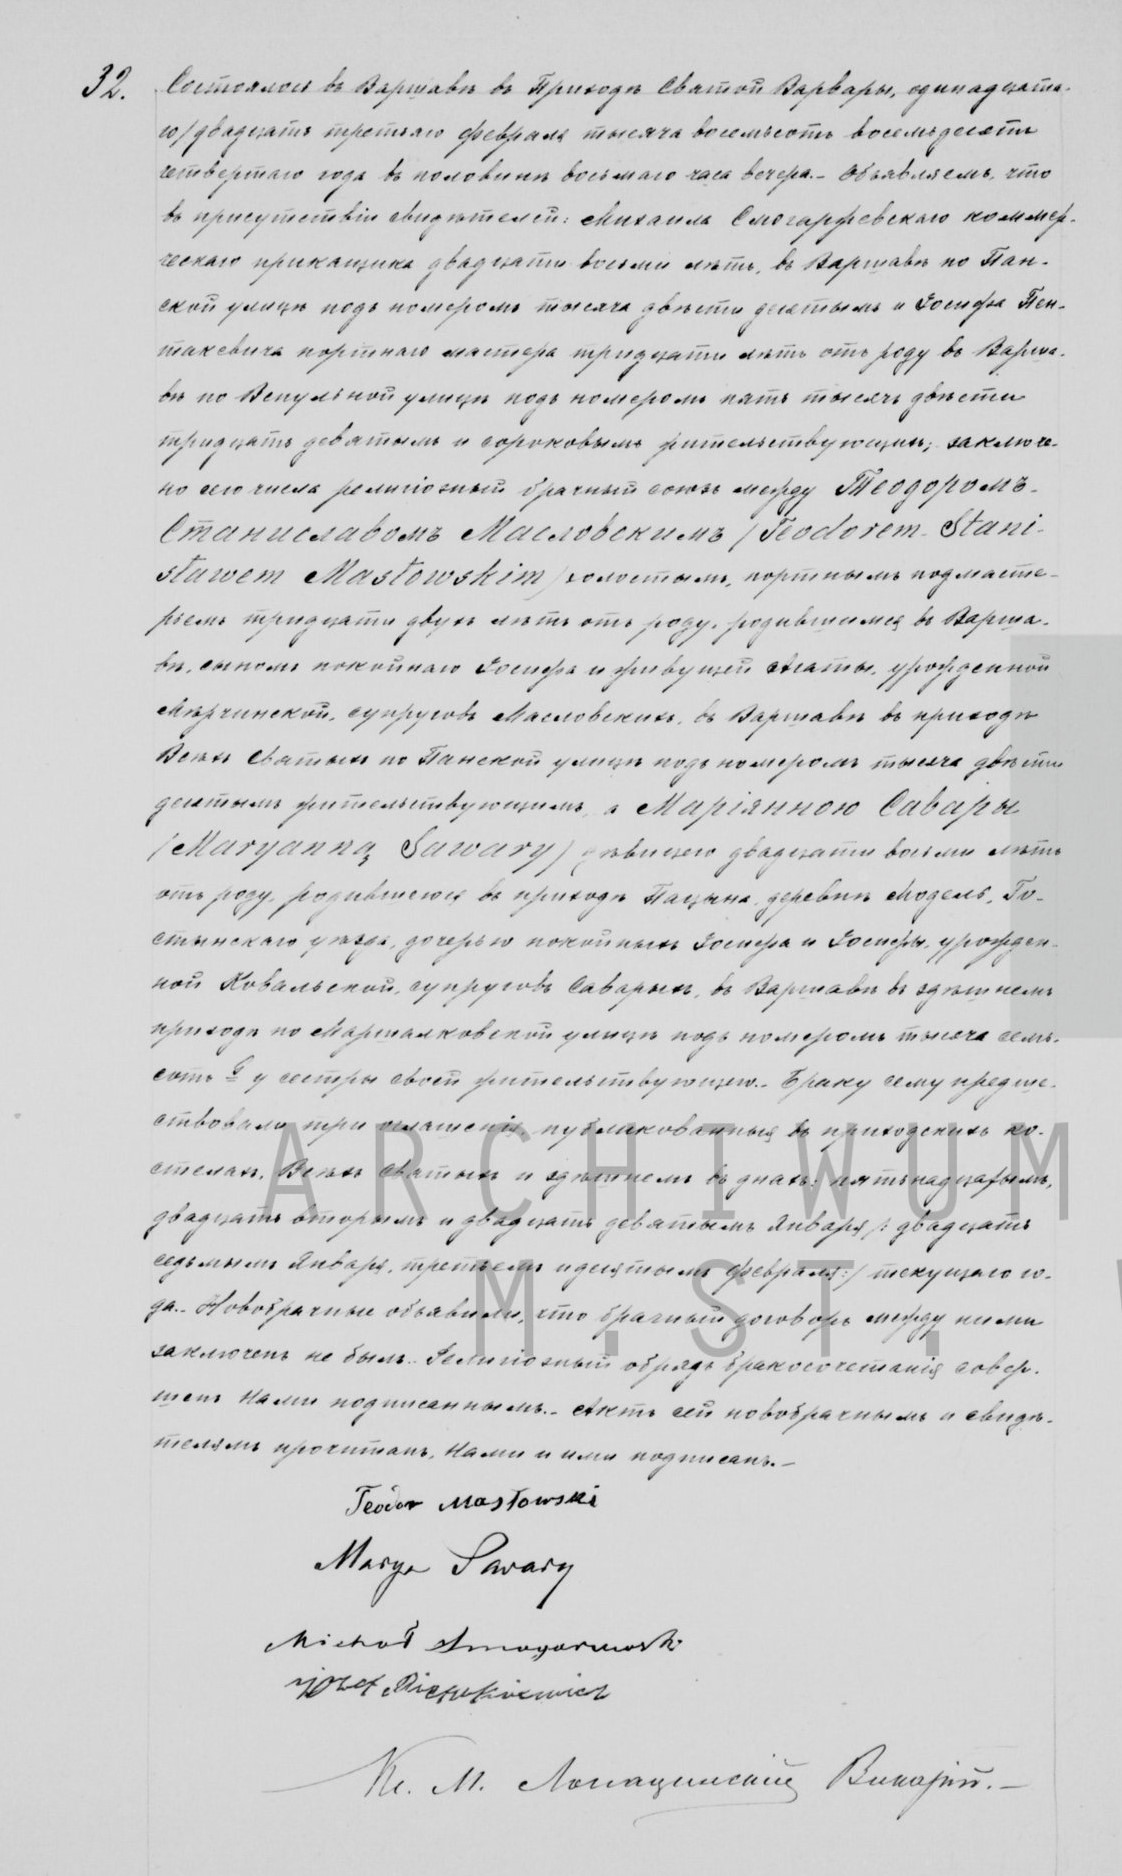 32. Состоялось въ Варшавѣ въ Приходѣ Святой Варвары, одинадцата-
го/двадцать третьяго Февраля тысяча восемьсотъ восемьдесятъ
четвертаго года въ половинѣ восьмаго часа вечера.- Объявляемъ, что
въ присутствіи свидѣтелей: Михаила Смогаржевскаго коммер-
ческаго прикащика двадцати восьми лѣтъ, въ Варшавѣ по Пан-
ской улицѣ подъ номеромъ тысяча двѣсти десятымъ и Іосифа Пен-
такевича портнаго мастера тридцати лѣтъ отъ роду въ Варша-
вѣ по Вспульной улицѣ подъ номеромъ пять тысячъ двѣсти
тридцать девятымъ и сороковымъ жительствующихъ; заключе-
но сего числа религіозный брачный союзъ между Теодоромъ-
Станиславомъ Масловскимъ /Teodorem-Stani-
sławem Masłowskim/ холостымъ, портнымъ подмасте-
рьемъ тридцати двухъ лѣтъ отъ роду, родившимся въ Варша-
вѣ, сыномъ покойнаго Іосифа и живущей Агаты, урожденной
Мѣрчинской, супруговъ Масловскихъ, въ Варшавѣ въ приходѣ
Всѣхъ Святыхъ по Панской улицѣ подъ номеромъ тысяча двѣсти
десятымъ жительствующимъ, а Маріянною Савары
/Maryanną Sawary/ дѣвицею двадцати восьми лѣтъ
отъ роду, родившеюся въ приходѣ Пацына, деревнѣ Модель, Го-
стынскаго уѣзда, дочерью покойныхъ Іосифа и Іосифы, урожден-
ной Ковальской, супруговъ Саварыхъ, въ Варшавѣ въ здѣшнемъ
приходѣ по Маршалковской улицѣ подъ номеромъ тысяча семь-
сотъ у сестры своей жительствующею.- Браку сему предше-
ствовали три оглашенія, публикованныя въ приходскихъ ко-
стелахъ, Всѣхъ Святыхъ и здѣшнемъ въ дняхъ: пятьнадцатымъ,
двадцать вторымъ и двадцать девятымъ Января /: двадцать
седьмымъ Января, третьемъ и десятымъ Февраля:/ текущаго го-
да.- Новобрачные объявили, что брачный договоръ между ними
заключенъ не былъ.- Религіозный обрядъ бракосочетанія совер-
шенъ Нами подписаннымъ.- Актъ сей новобрачнымъ и свидѣ-
телямъ прочитанъ, Нами и ими подписанъ.-
Teodor Masłowski
Marya Savary
Michał Smogarzewski
Józef Pientkiewicz
Кс. М. Лопацинскій Викарій.-
ARCHIWUM
M. ST.